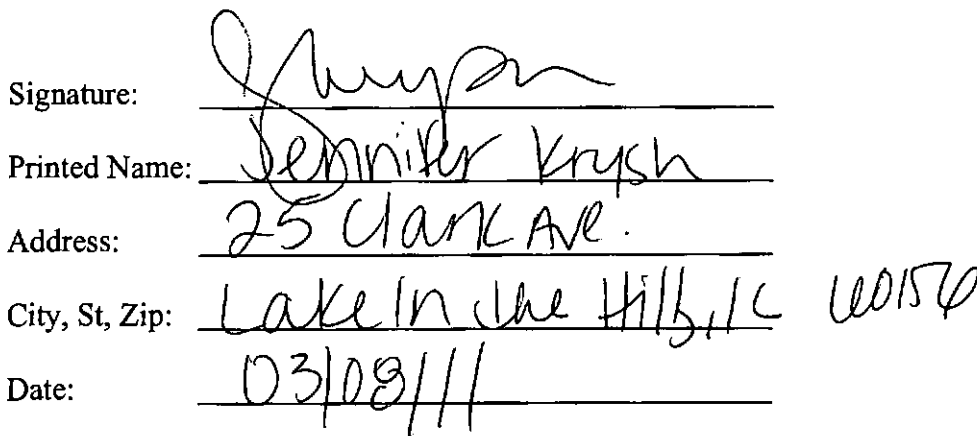 Signature:
Printed Name: Jennifer Krysh
Address: 25 Clark Ave.
City, St, Zip: Lake In the Hills, IL 60156
Date: 03/08/11